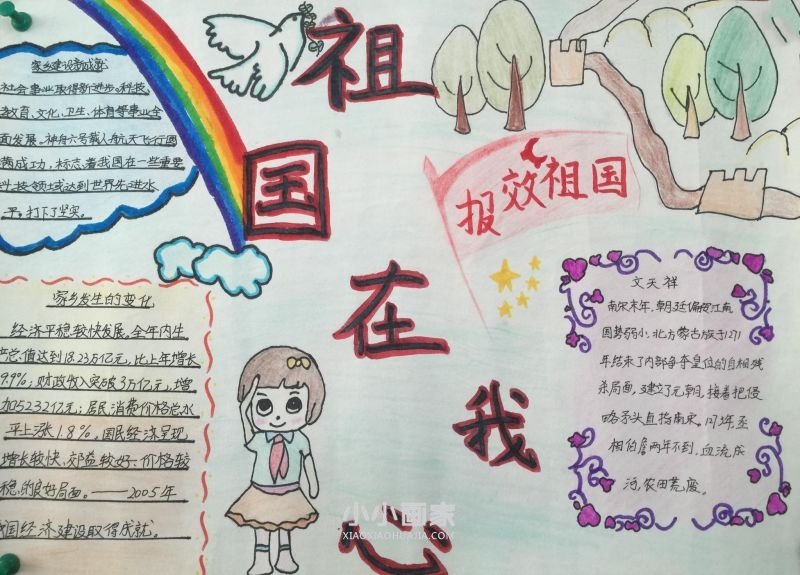 祖
国
在
我
心
报效祖国
家乡建设新成就
社会事业取得新进步。科技、
教育、文化、卫生、体育等事业全
面发展。神舟六号载人航天飞行圆
满成功,标志着我国在一些重要
科技领域达到世界先进水
平。打下了坚实。
家乡发生的变化
经济平稳较快发展。全年内生
产总值达到18.23万亿元,比上年增长
9.9%;财政收入突破3万亿元,增
加5232亿元;居民消费价格总水
平上涨1.8%。国民经济呈现
增长较快、效益较好、价格较
稳的良好局面。——2005年
我国经济建设取得成就。
文天祥
南宋末年,朝廷偏安江南
国势弱小,北方蒙古族于1271
年结束了内部争夺皇位的自相残
杀局面,建立了元朝,接着把侵
略矛头直指南宋。1273年至
相伯颜两年不到,血流成
河,农田荒废。
小小画家
XIAOXIAOHUAJIA.COM